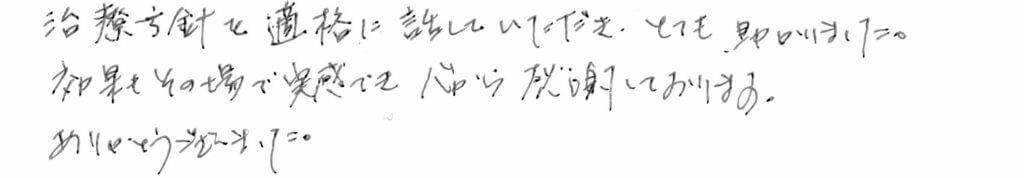 治療方針を適格に話していただき、とても助かりました。
効果もその場で実感でき 心から感謝しております。
ありがとうございました。